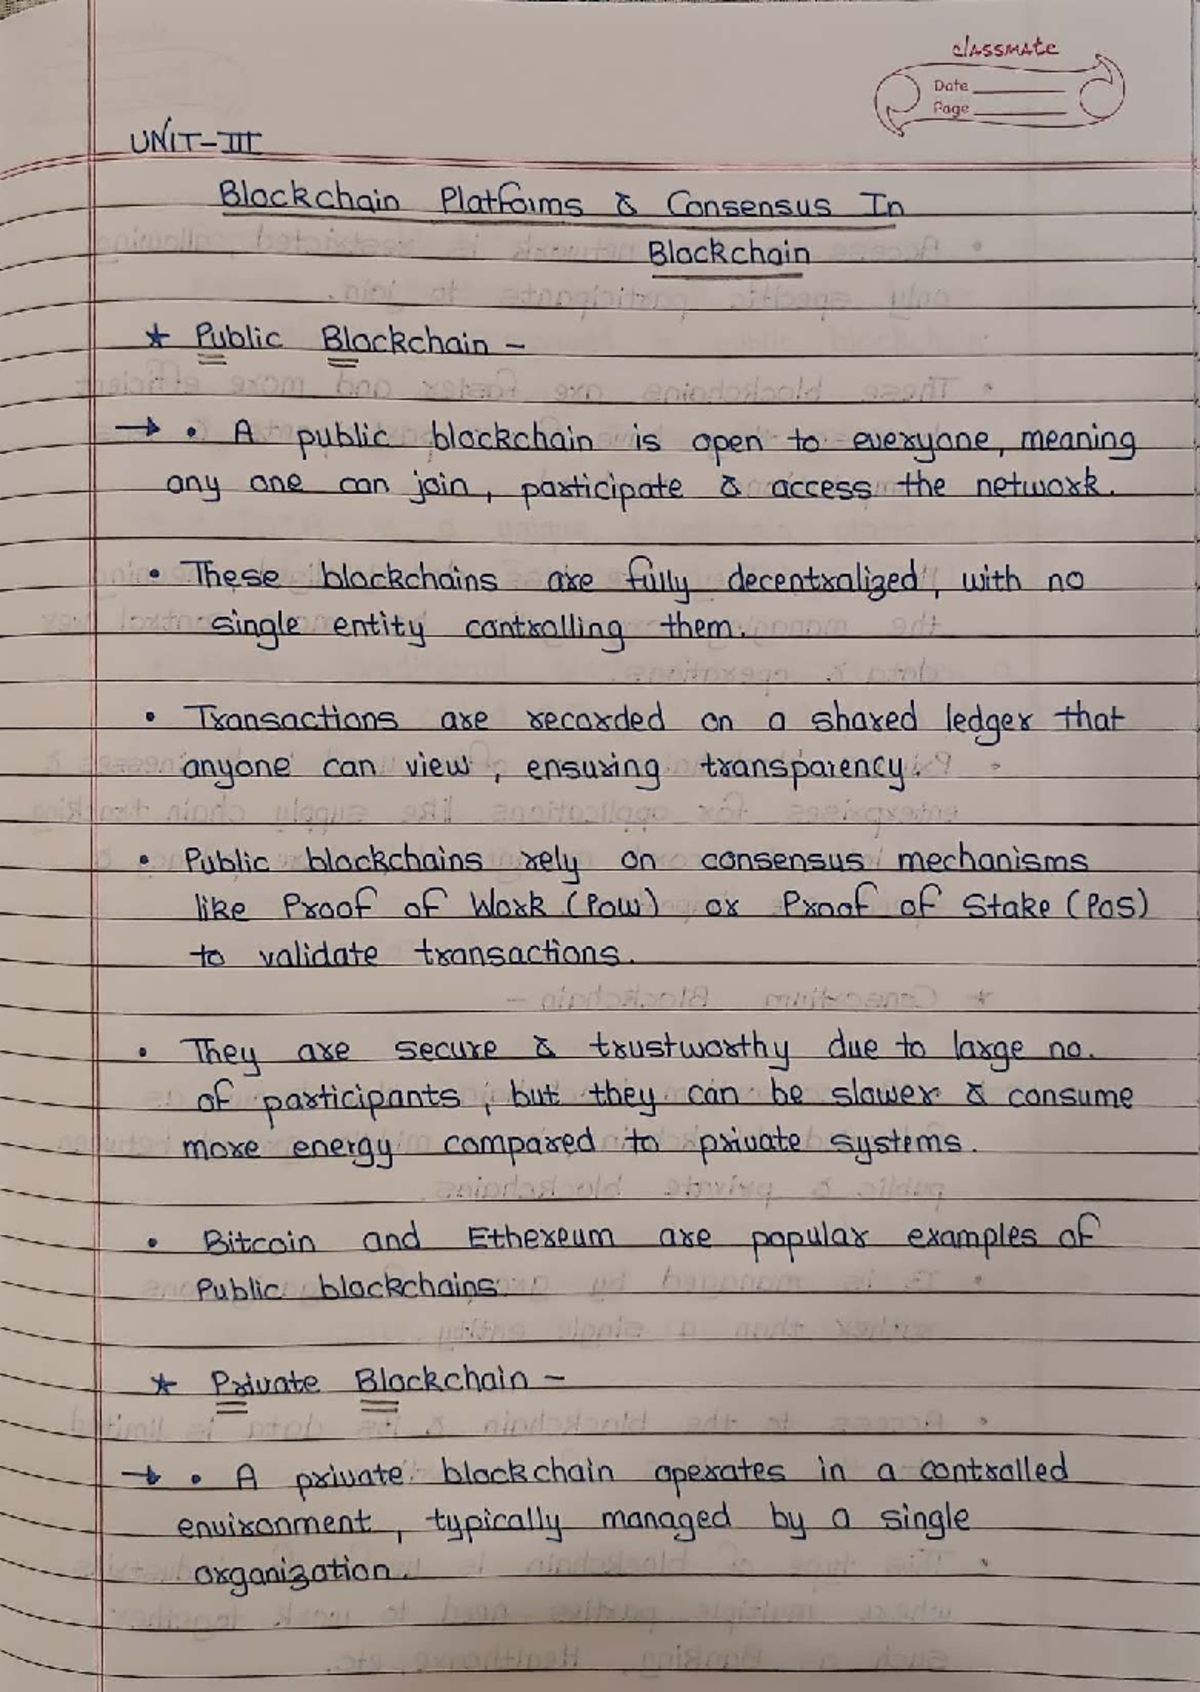 classmate
Date
Page
UNIT-III
Blockchain Platforms & Consensus In
Blockchain
* Public Blockchain -
→ • A public blockchain is open to everyone, meaning
any one can join, participate & access the network.
• These blockchains are fully decentralized, with no
single entity controlling them.
• Transactions are recorded on a shared ledger that
anyone can view, ensuring transparency.
• Public blockchains rely on consensus mechanisms
like Proof of Work (PoW) or Proof of Stake (PoS)
to validate transactions.
• They are secure & trustworthy due to large no.
of participants, but they can be slower & consume
more energy compared to private systems.
• Bitcoin and Ethereum are popular examples of
Public blockchains.
* Private Blockchain -
→ • A private blockchain operates in a controlled
environment, typically managed by a single
organization.